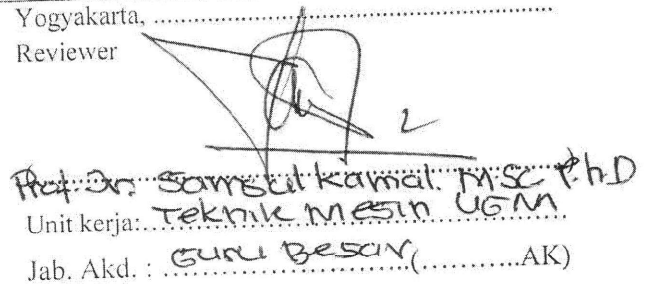 Yogyakarta, ........................................................
Reviewer
Prof. Dr. Samsul Kamal. M.Sc Ph.D
Unit kerja:..Teknik Mesin UGM
Jab. Akd. : Guru Besar(..........AK)